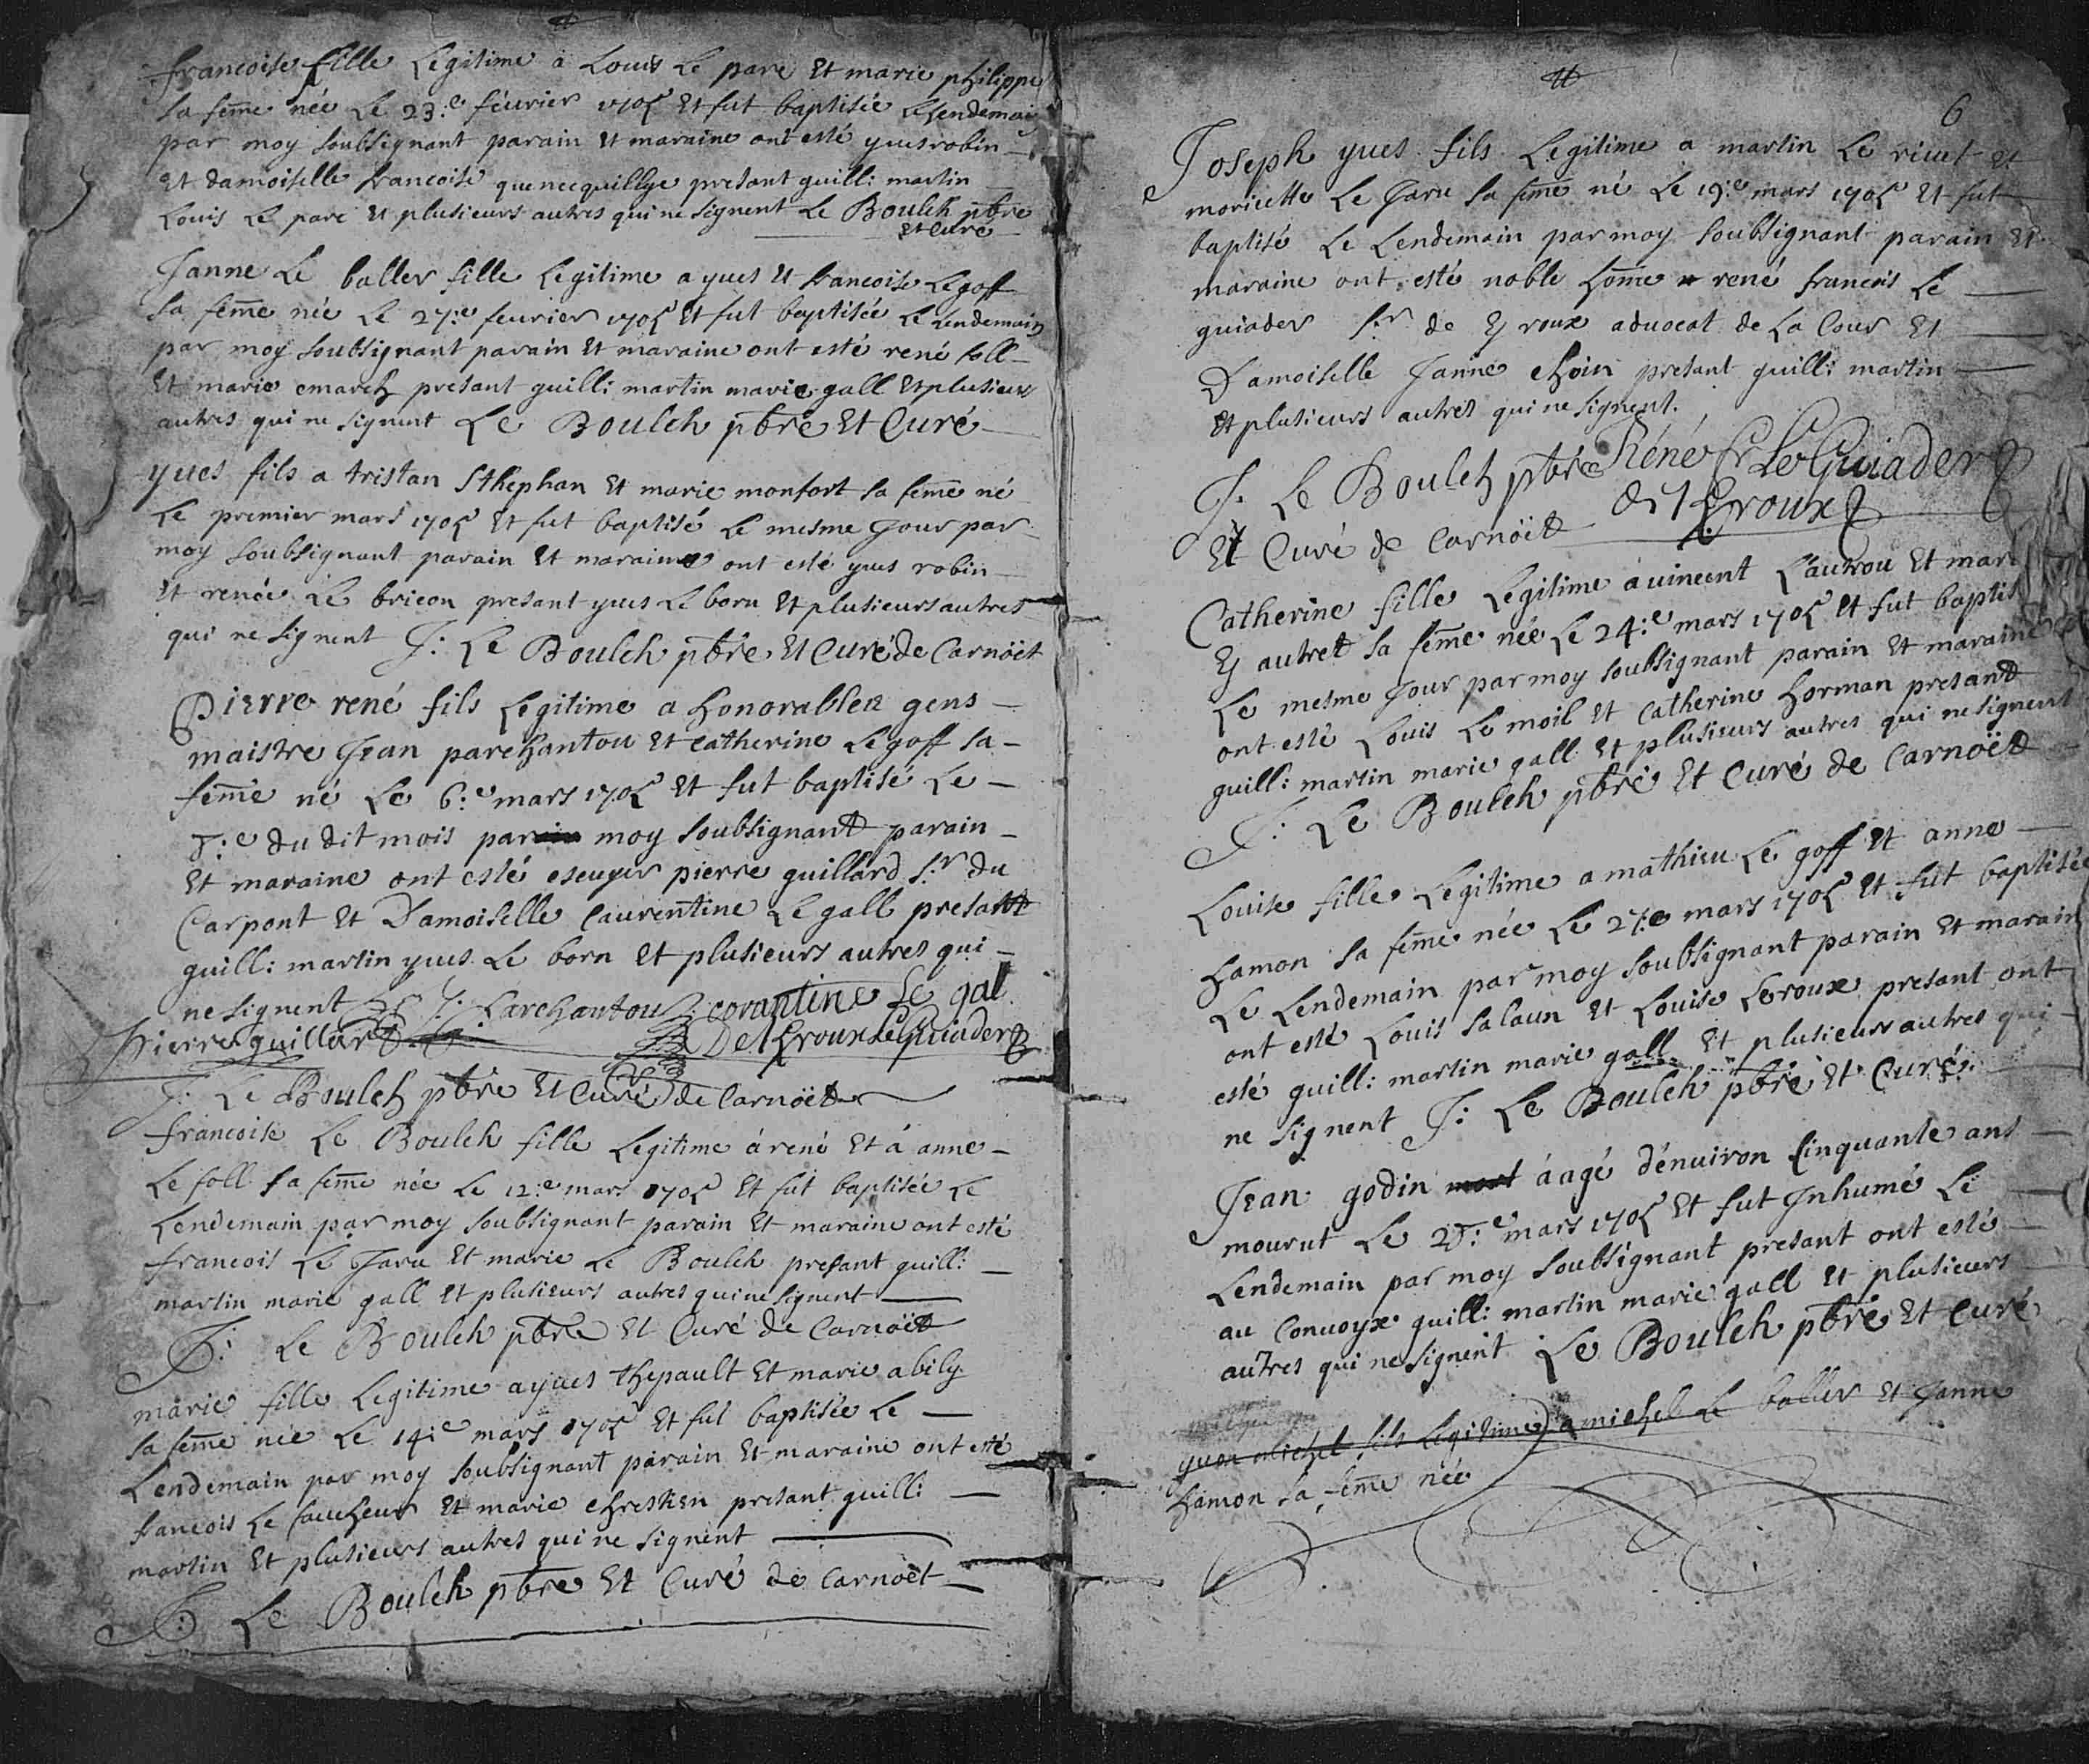 francoise fille Legitime a Louis Le parc Et marie philippe
sa fem̃e née Le 23:e féurier 1705 Et fut baptisée Le Lendemain
par moy soubsignant parain Et maraine ont esté yues robin
Et damoiselle francoise quenecquillye presant guill: martin
Louis Le parc Et plusieurs autres qui ne signent Le Boulch pbre
Et Curé
Janne Le baller fille Legitime a yues Et francoise Le goff
sa fem̃e née Le 27:e feurier 1705 Et fut baptisée Le Lendemain
par moy soubsignant parain Et maraine ont esté rené foll
Et marie emarch presant guill: martin marie gall Et plusieurs
autres qui ne signent Le Boulch pbre Et Curé
yues fils a tristan Sthephan Et marie monfort sa fem̃e né
Le premier mars 1705 Et fut baptisé Le mesme Jour par
moy soubsignant parain Et maraine ont esté yues robin
Et renée Le bricon presant yues Le born Et plusieurs autres
qui ne signent J: Le Boulch pbre Et Curé de Carnöet
Pierre rené fils Legitime a honorables gens
maistre Jean parchantou Et Catherine Le goff sa
fem̃e né Le 6:e mars 1705 Et fut baptisé Le
8:e du dit mois par moy soubsignant parain
Et maraine ont esté escuyer pierre guillard s:r du
Carpont Et Damoiselle Caurentine Le gall presant
guill: martin yues Le born Et plusieurs autres qui
ne signent J: Larchantou corantine Le gal
Pierre guillard De Kroux Le Guiader
J: Le Boulch pbre Et Curé de Carnöet
francoise Le Boulch fille Legitime á rené Et á anne
Le foll sa fem̃e née Le 12:e mars 1705 Et fut baptisée Le
Lendemain par moy soubsignant parain Et maraine ont esté
francois Le Jaru Et marie Le Boulch presant guill:
martin marie gall Et plusieurs autres qui ne signent
J: Le Boulch pbre Et Curé de Carnöet
marie fille Legitime a yues thepault Et marie abily
sa fem̃e née Le 14:e mars 1705 Et fut baptisée Le
Lendemain par moy soubsignant parain Et maraine ont esté
francois Le faucheur Et marie chrestien presant guill:
martin Et plusieurs autres qui ne signent
J: Le Boulch pbre Et Curé de Carnöet
6
Joseph yues fils Legitime a martin Le riuet Et
moricette Le Jaru sa fem̃e né Le 19:e mars 1705 Et fut
baptisé Le Lendemain par moy soubsignant parain Et
maraine ont esté noble hom̃e rené francois Le
guiader s:r de Kroux aduocat de La Cour Et
Damoiselle Janne choin presant guill: martin
Et plusieurs autres qui ne signent.
J. Le Boulch pbre Réné F Le Guiader
Et Curé de Carnöet de Kroux
Catherine fille Legitime a uincent L'autrou Et mari
K autret sa fem̃e née Le 24:e mars 1705 Et fut baptis
Le mesme Jour par moy soubsignant parain Et maraine
ont esté Louis Le moil Et Catherine horman presant
guill: martin marie gall Et plusieurs autres qui ne signent
J: Le Boulch pbre Et Curé de Carnöet
Louise fille Legitime a mathieu Le goff Et anne
hamon sa fem̃e née Le 27:e mars 1705 Et fut baptisée
Le Lendemain par moy soubsignant parain Et marain
ont esté Louis Salaun Et Louise Leroux presant ont
esté guill: martin marie gall Et plusieurs autres qui
ne signent J: Le Boulch pbre Et Curé.
Jean godin mort áagé dénuiron Cinquante ans
mourut Le 28:e mars 1705 Et fut Inhumé Le
Lendemain par moy soubsignant presant ont esté
au Conuoyx guill: martin marie gall Et plusieurs
autres qui ne signent Le Boulch pbre Et Curé
yuon michel fils Legitime a michel Le baller Et Janne
hamon sa fem̃e née